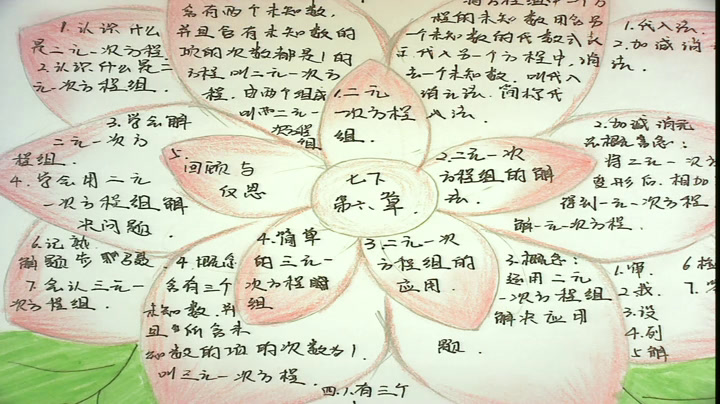 1.认识什么
是二元一次方程
2.认识什么是二
元一次方程组.
3.学会解
二元一次方
程组.
4.学会用二元
一次方程组解
决问题.
6.记熟
解题步骤
7.会认三元一
次方程组.
含有两个未知数,
并且含有未知数的
项的次数都是1的
方程,叫二元一次方
程.由两个组成
叫二元一
次方程
组
程的未知数用含另
一个未知数的代数式
代入另一个方程中,消
去一个未知数.叫代入
消元法.简称代
入法.
1.代入法.
2.加减消
法.
2.加减消元
将二元一次方
变形后.相加
得到一元一次方程
解一元一次方程.
1.二元
一次方程
组.
2.二元一次
方程组的解
法.
3.二元一次
方程组的
应用.
4.简单
的三元一
次方程
组
5.
回顾与
反思
七下
第六章.
4.概念
含有三个
未知数.并
且所含未
知数的项的次数为1.
叫三元一次方程.
3.概念:
运用二元
一次方程组
解决应用
题.
1.审.
2.找.
3.设
4.列
5.解
6.检
7.
四.1.有三个